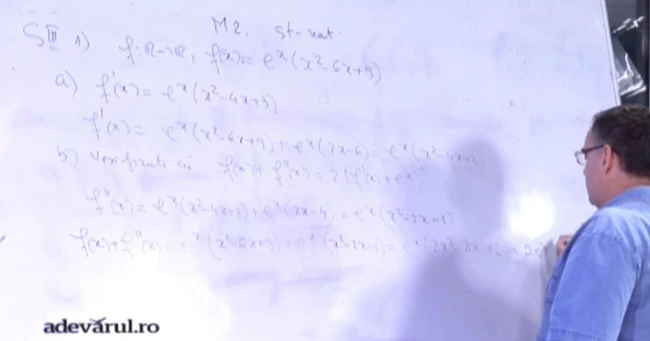 M2. st-nat.
SIII 1) f:ℝ→ℝ, f(x)=eˣ(x²-6x+9)
a) f'(x)=eˣ(x²-4x+3)
f'(x)=eˣ(x²-6x+9)+eˣ(2x-6)=eˣ(x²-4x+3)
b) f(x)+f''(x)=2(f'(x)+eˣ)
f''(x)=eˣ(x²-4x+3)+eˣ(2x-4)=eˣ(x²-2x-1)
f(x)+f''(x)=eˣ(x²-6x+9)+eˣ(x²-2x-1)=eˣ(2x²
adevărul.ro